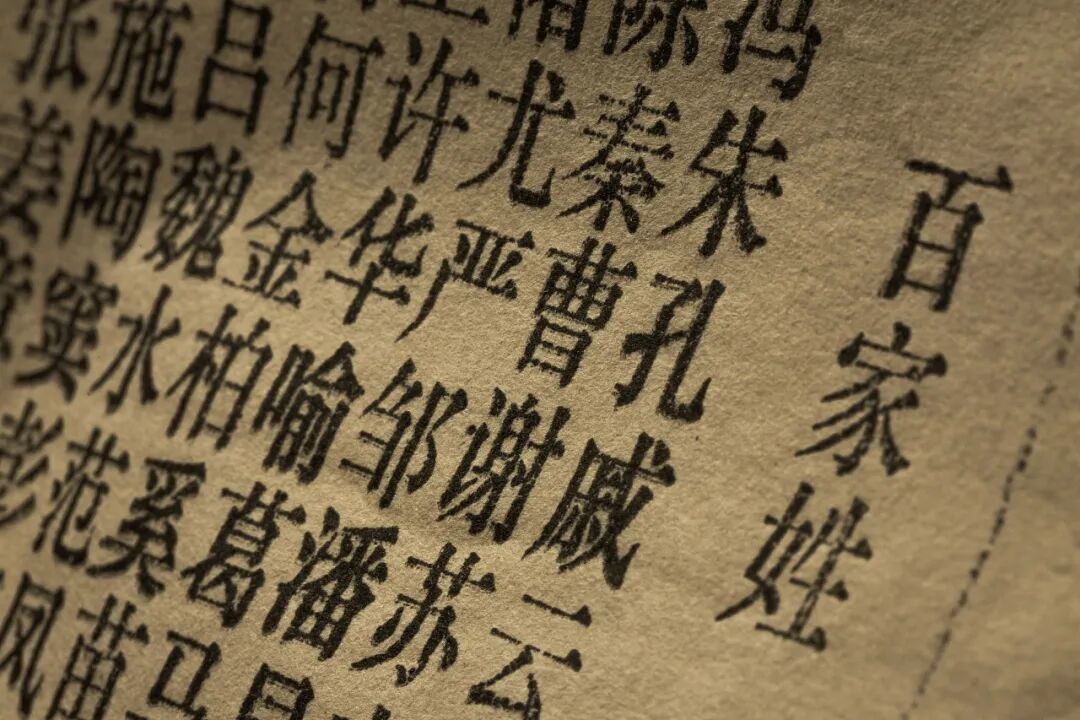 百家姓
冯陈褚
朱秦尤许何吕施张
孔曹严华金魏陶姜
戚谢邹喻柏水窦
云苏潘葛奚范彭
昌马苗凤